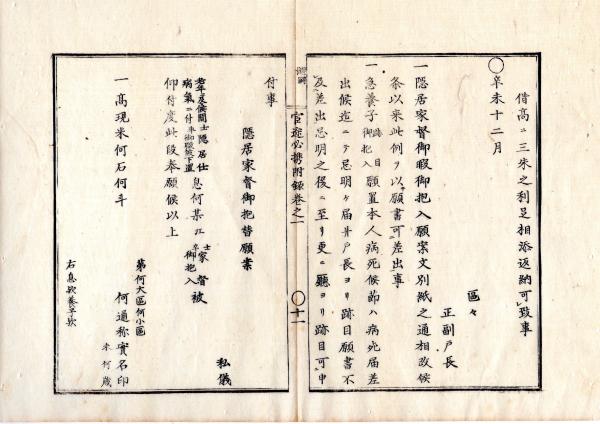 借高ニ三朱之利足相添返納可致事
○辛未十二月
區々
正副戸長
一隠居家督御暇御抱入願案文別紙之通相改候
条以来此例ヲ以願書可差出事
一急養子跡目御抱入願置本人病死候節ハ病死届差
出候迄ニテ忌明ケ届并戸長ヨリ跡目願書不
及差出忌明之後ニ至リ更ニ廳ヨリ跡目可申
官途必携附録巻之一
○十一
付事
隠居家督御抱替願案
私儀
老年ニ及候間士隠居仕息何某江士家督被
病氣ニ付卒御暇被下置卒御抱入
仰付度此段奉願候以上
第何大區何小區
何通称實名印
年何歳
一高現米何石何斗
右息欤養子欤